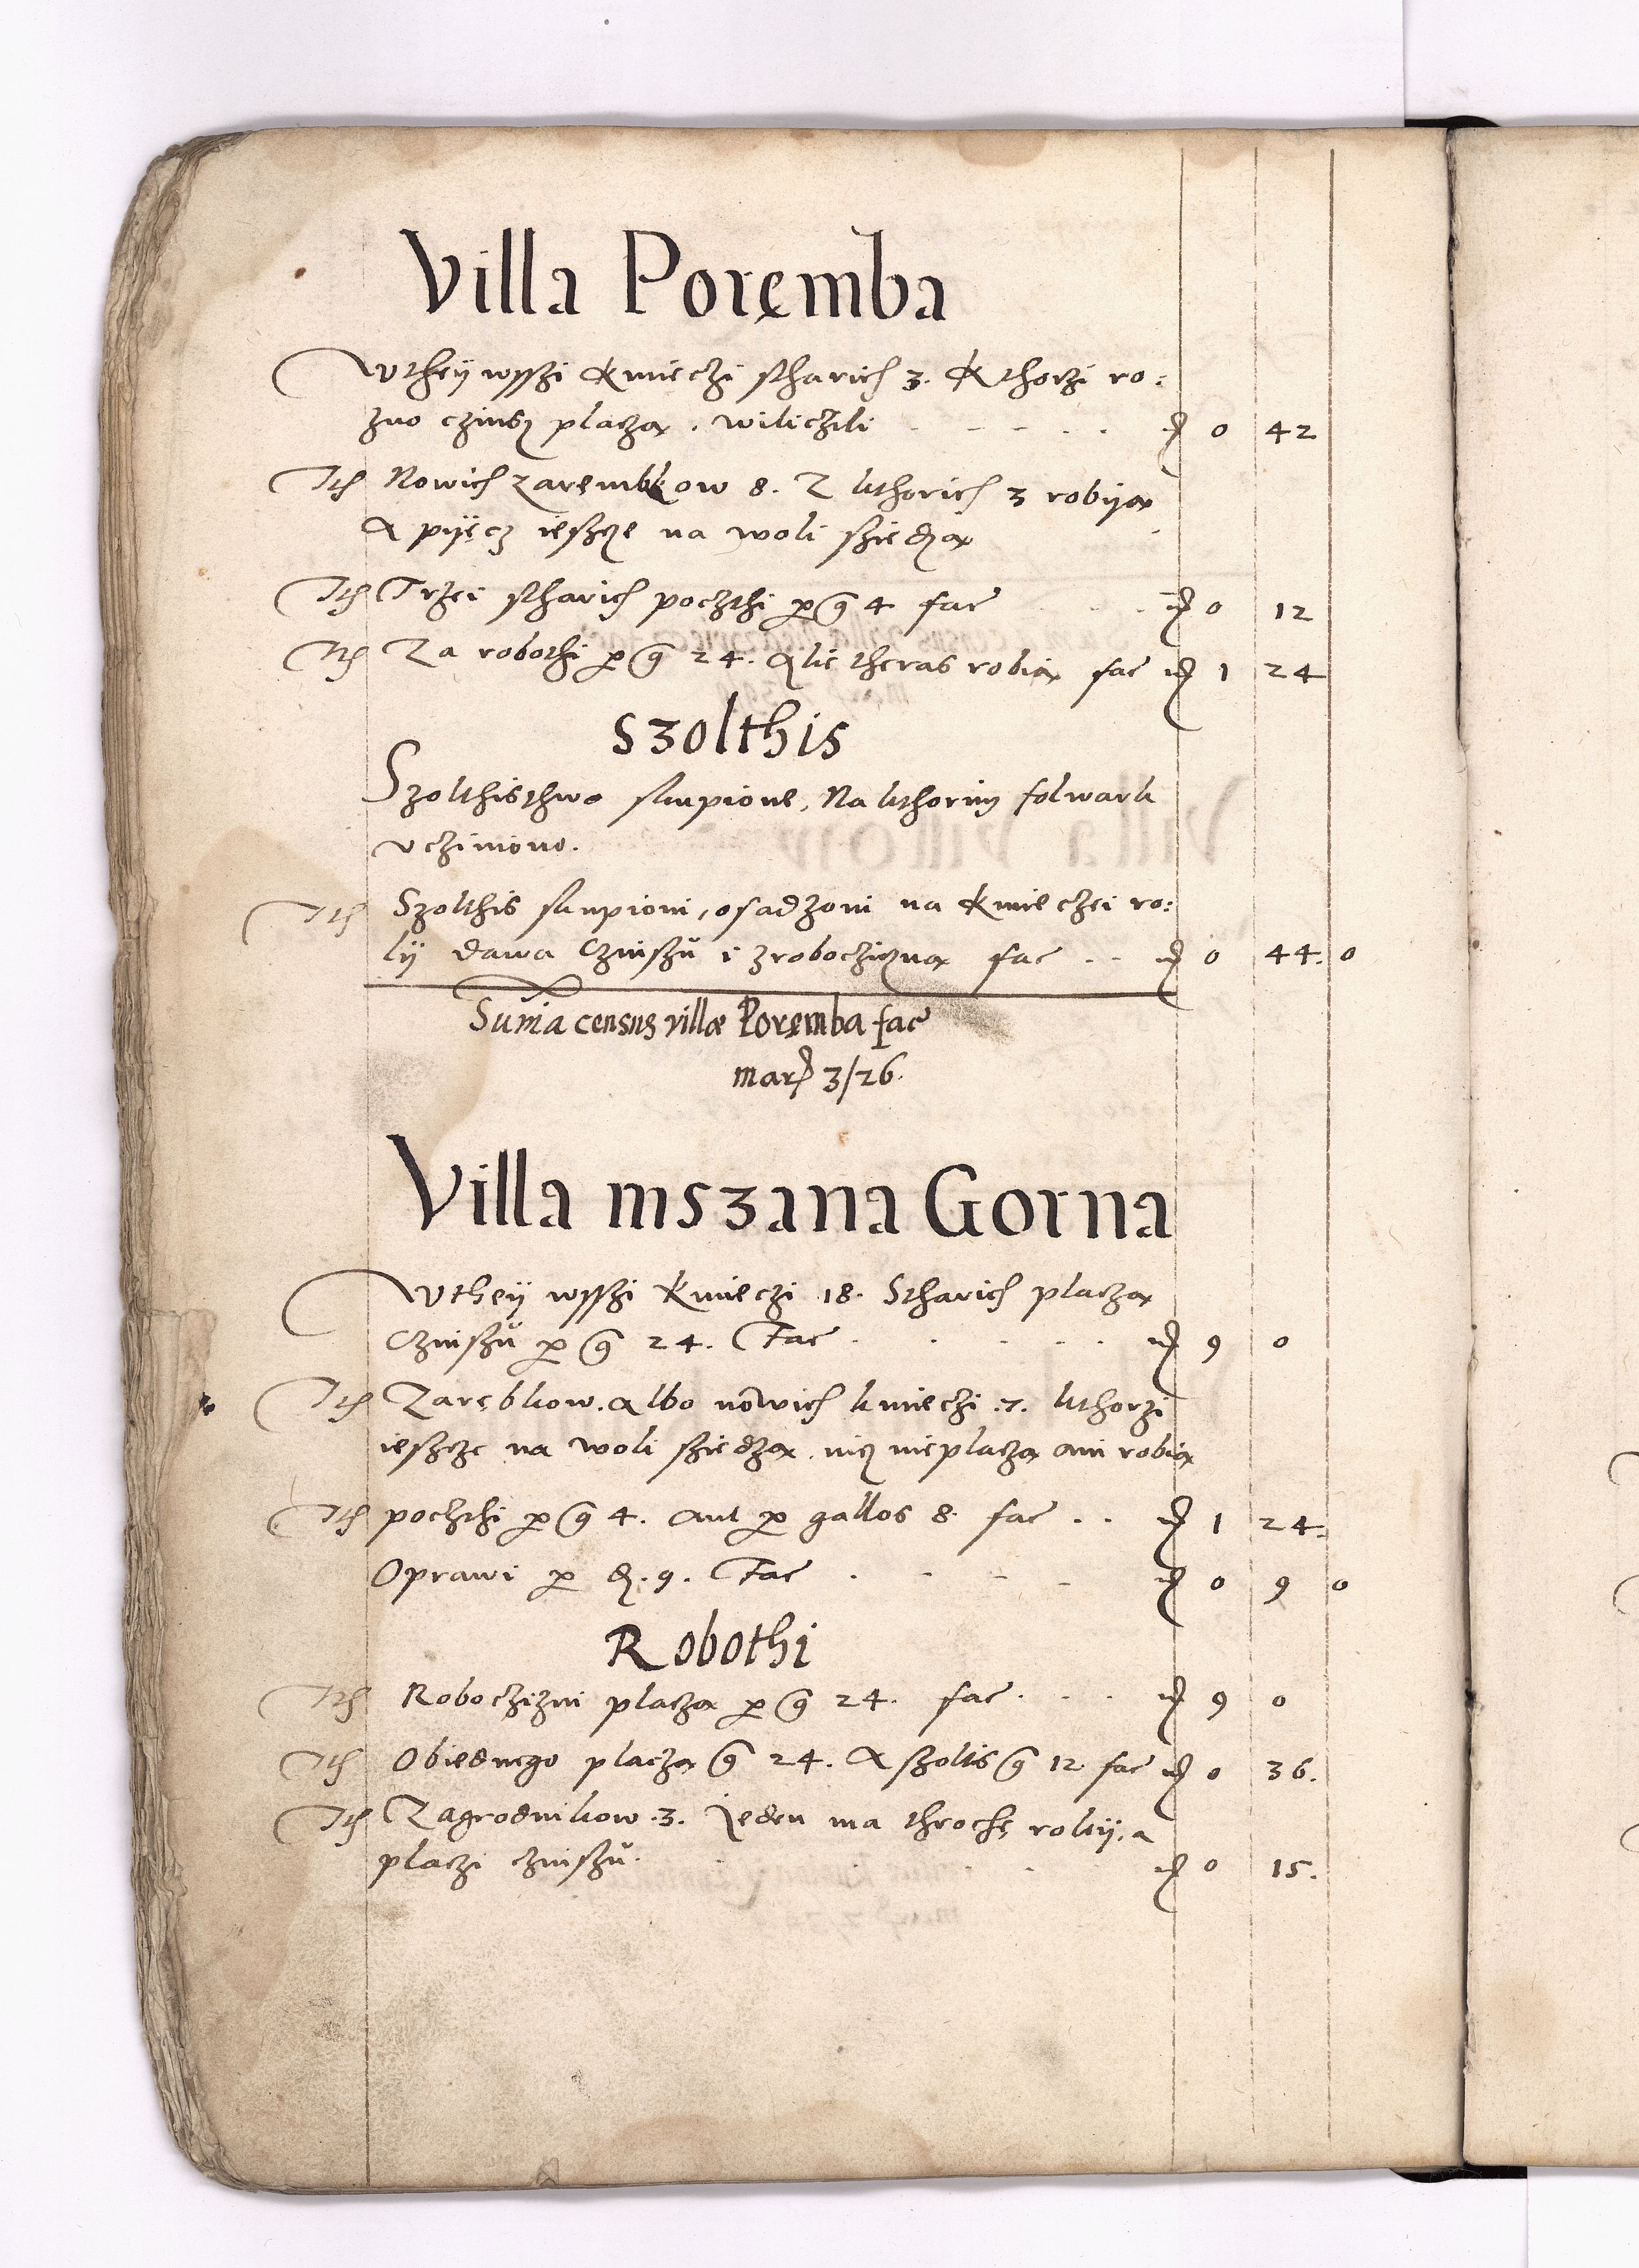 Villa Poręmba
Wthey wsszi Kmieczi stharich 3. Kthorzi ro:
zno czinsz placzą . wiliczili - - - - - m 0 42
Ith Nowich zarembkow 8. Z kthorich 3 robiyą
A piyęcz ieszcze na woli sziedzą
Ith Trzei stharich poczthi per g 4 fac . . . m 0 12
Ith Za robothi per g 24. Alie theras robią fac m 1 24
Szolthis
Szolthisthwo skupione, Na kthorim folwark
vcziniono.
Ith Szolthis skupioni, osadzoni na Kmieczei ro:
ly dawa Czinszu i zrobocziczną fac . . m 0 44. 0
Suma census villæ Poręmba fac
mar 3/26.
Villa mszana Gorna
Wthey wsszi Kmieczi 18. Stharich placzą
Czinszu per g 24. Fac . . . . . m 9 0
Ith Zarębkow. Albo nowich kmieczi .7. kthorzi
iesczcze na woli sziedzą. nicz nieplaczą ani robią
Ith poczthi per g 4. aut per gallos 8. fac . . m 1 24.
Oprawi per d. 9. Fac . - - - m 0 9 0
Robothi
Ith Roboczizni placzą per g 24. fac . . . m 9 0
Ith Obiednego placzą g 24. A szoltis g 12 fac m 0 36.
Ith Zagrodnikow .3. Jeden ma throchę roliy, a
placzi czinszu. . . . m 0 15.